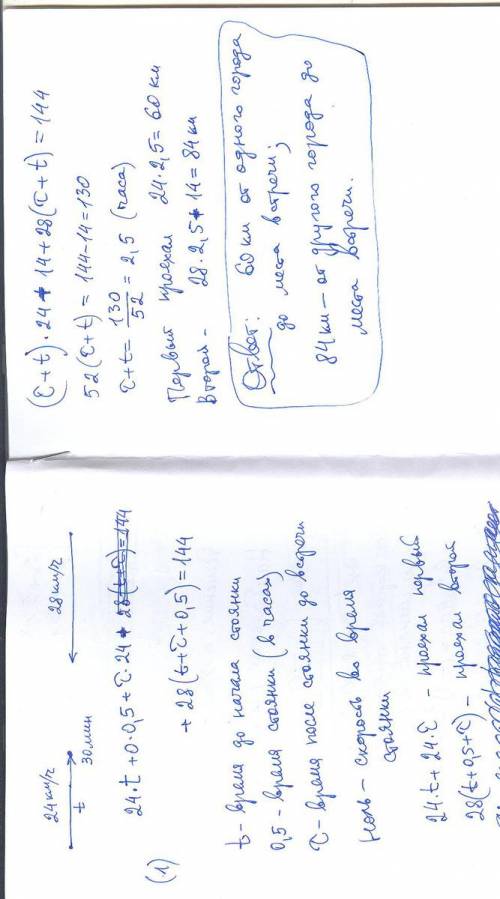 24км/ч 28км/ч
t 30мин
(1) 24·t+0·0,5+τ·24+ 28(t+τ)=144
+28(t+τ+0,5)=144
t- время до начала стоянки
0,5- время стоянки (в часах)
τ- время после стоянки до встречи
Ноль- скорость во время
стоянки
24·t+24·τ - проехал первый
28(t+0,5+τ)- проехал второй
(τ+t)·24+14+28(τ+t)=144
52(τ+t)=144-14=130
τ+t=130/52=2,5 (часа)
Первый проехал 24·2,5=60км
Второй- 28·2,5+14=84км
Ответ: 60км от одного города
до места встречи;
84км- от другого города до
места встречи.